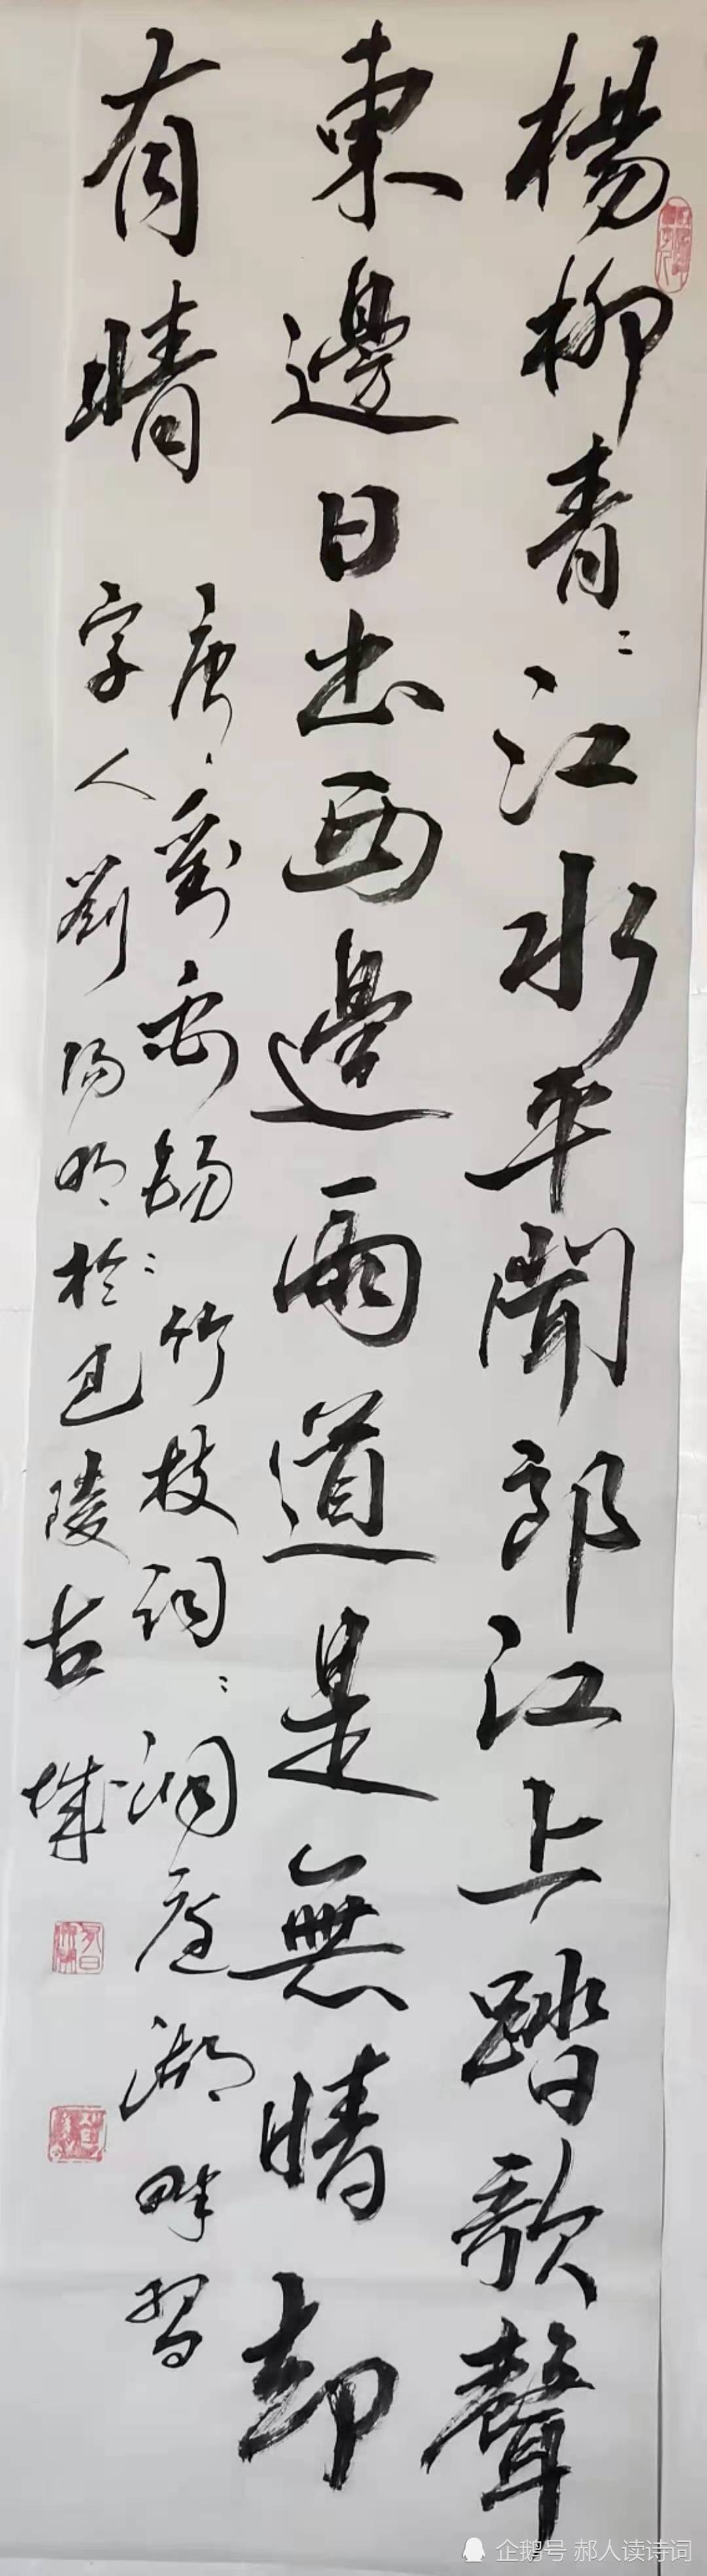 楊柳青〻江水平聞郎江上踏歌聲
東邊日出西邊雨道是無晴却
有晴
唐、劉禹錫〻竹枝詞〻洞庭湖畔習
字人劉陽明於巴陵古城
企鹅号 郝人读诗词